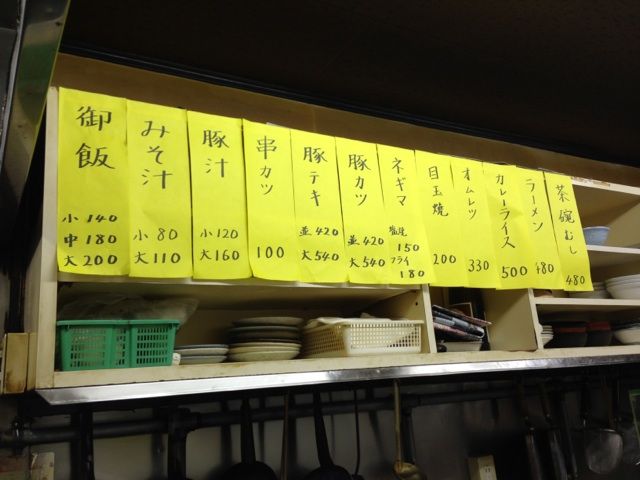 御飯
小 140
中 180
大 200
みそ汁
小 80
大 110
豚汁
小 120
大 160
串カツ
100
豚テキ
並 420
大 540
豚カツ
並 420
大 540
ネギマ
塩焼
150
フライ
180
目玉焼
200
オムレツ
330
カレーライス
500
ラーメン
480
茶碗むし
480